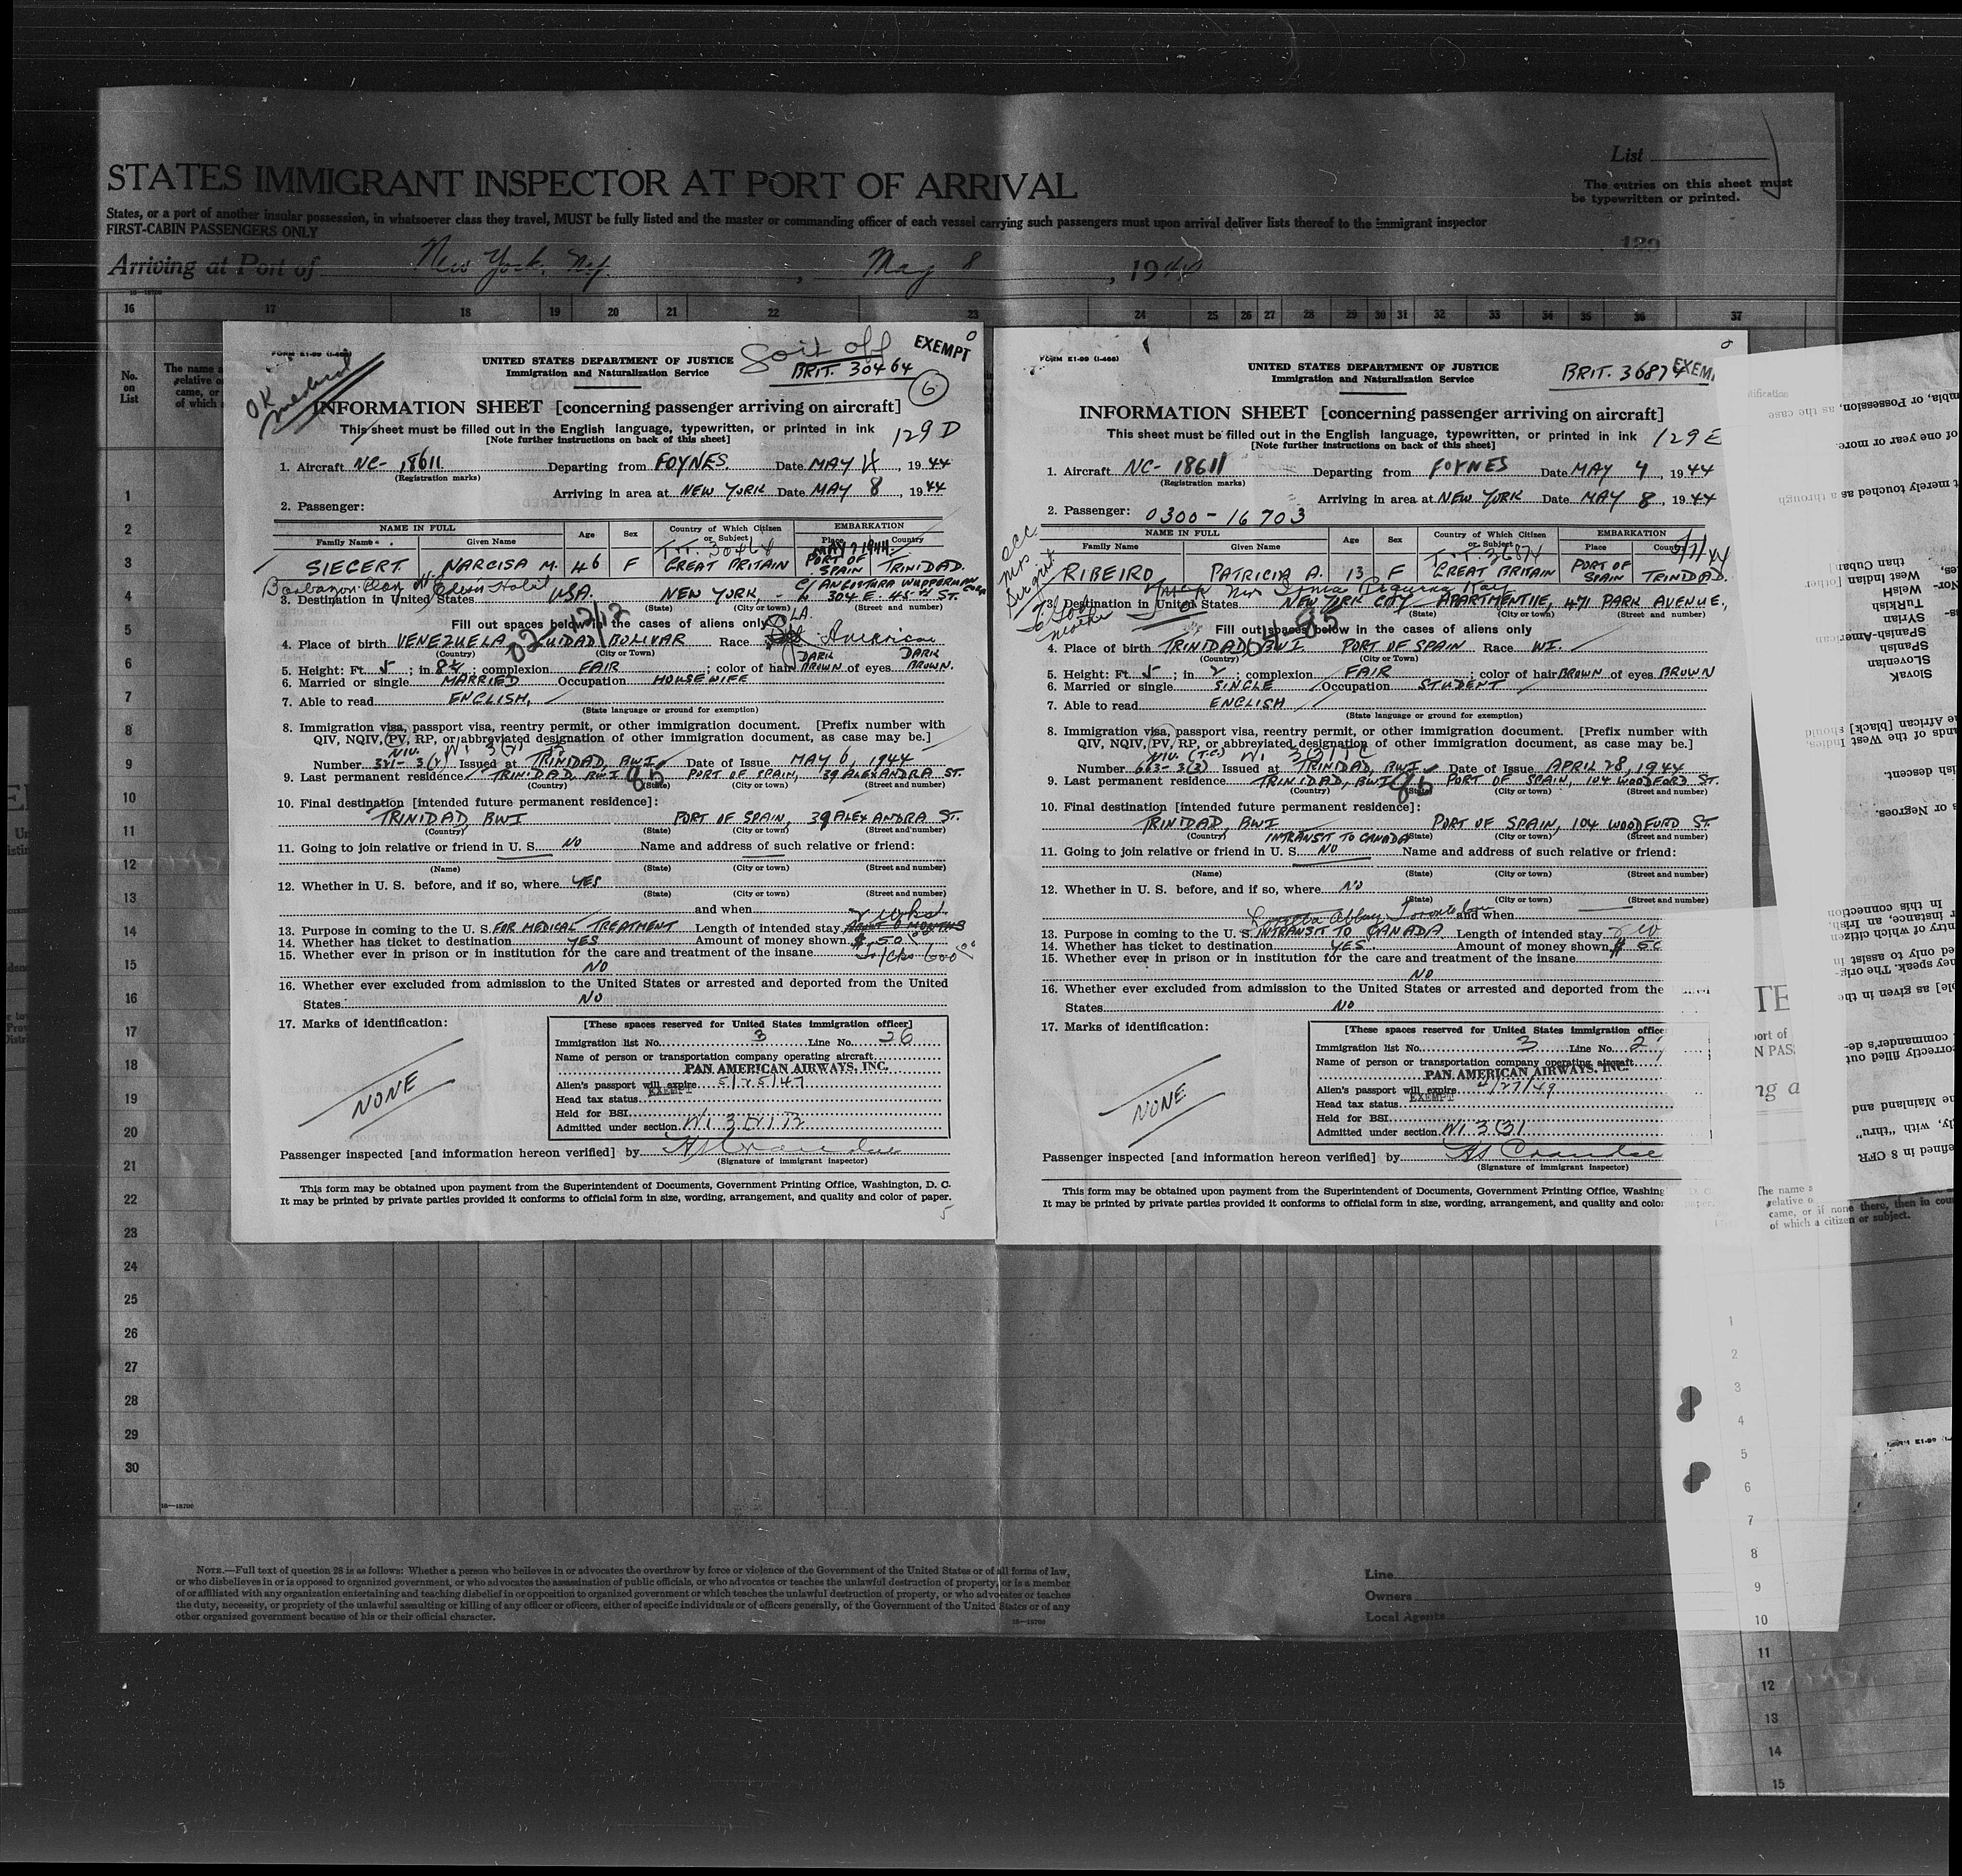 STATES IMMIGRANT INSPECTOR AT PORT OF ARRIVAL
List
The entries on this sheet must
be typewritten or printed.
States, or a port of another insular possession, in whatsoever class they travel, MUST be fully listed and the master or commanding officer of each vessel carrying such passengers must upon arrival deliver lists thereof to the immigrant inspector
FIRST-CABIN PASSENGERS ONLY
129
Arriving at Port of New York, N.Y., May 8, 1944
16 17 18 19 20 21 22 23 24 25 26 27 28 29 30 31 32 33 34 35 36 37
No.
on
List
The name a
relative o
came, or
of which
1
2
3
4
5
6
7
8
9
10
11
12
13
14
15
16
17
18
19
20
21
22
23
24
25
26
27
28
29
30
FORM E1-99 (I-466)
OK
medical
UNITED STATES DEPARTMENT OF JUSTICE
Immigration and Naturalization Service
BRIT. 30464
EXEMPT
6
INFORMATION SHEET [concerning passenger arriving on aircraft]
This sheet must be filled out in the English language, typewritten, or printed in ink
[Note further instructions on back of this sheet]
129 D
1. Aircraft NC- 18611 Departing from FOYNES Date MAY 4, 1944
(Registration marks)
Arriving in area at NEW YORK Date MAY 8, 1944
2. Passenger:
NAME IN FULL Age Sex Country of Which Citizen or Subject EMBARKATION
Family Name Given Name Place Country
SIEGERT NARCISA M. 46 F GREAT BRITAIN PORT OF SPAIN TRINIDAD.
3. Destination in United States USA. NEW YORK, - c/o ANGOSTURA WUPPERMAN CORP 304 E. 45TH ST.
(State) (City or town) (Street and number)
Fill out spaces below in the cases of aliens only
4. Place of birth VENEZUELA CUIDAD BOLIVAR Race American
(Country) (City or Town)
5. Height: Ft. 5; in 8½; complexion FAIR; color of hair DARK BROWN of eyes DARK BROWN.
6. Married or single MARRIED Occupation HOUSEWIFE
7. Able to read ENGLISH,
(State language or ground for exemption)
8. Immigration visa, passport visa, reentry permit, or other immigration document. [Prefix number with
QIV, NQIV, PV, RP, or abbreviated designation of other immigration document, as case may be.]
Number Issued at TRINIDAD, BWI. Date of Issue MAY 6, 1944
9. Last permanent residence TRINIDAD BWI PORT OF SPAIN, 39 ALEXANDRA ST.
(Country) (State) (City or town) (Street and number)
10. Final destination [intended future permanent residence]:
TRINIDAD, BWI PORT OF SPAIN, 39 ALEXANDRA ST.
(Country) (State) (City or town) (Street and number)
11. Going to join relative or friend in U. S. NO Name and address of such relative or friend:
(Name) (State) (City or town) (Street and number)
12. Whether in U. S. before, and if so, where YES
(State) (City or town) (Street and number)
and when
13. Purpose in coming to the U. S. FOR MEDICAL TREATMENT Length of intended stay
14. Whether has ticket to destination YES Amount of money shown $ 50
15. Whether ever in prison or in institution for the care and treatment of the insane
NO
16. Whether ever excluded from admission to the United States or arrested and deported from the United
States: NO
17. Marks of identification:
NONE
[These spaces reserved for United States immigration officer]
Immigration list No. 3 Line No. 26
Name of person or transportation company operating aircraft
PAN AMERICAN AIRWAYS, INC.
Alien's passport will expire 5/25/47
Head tax status EXEMPT
Held for BSI
Admitted under section
Passenger inspected [and information hereon verified] by
(Signature of immigrant inspector)
This form may be obtained upon payment from the Superintendent of Documents, Government Printing Office, Washington, D. C.
It may be printed by private parties provided it conforms to official form in size, wording, arrangement, and quality and color of paper.
5
FORM E1-99 (I-466)
UNITED STATES DEPARTMENT OF JUSTICE
Immigration and Naturalization Service
BRIT. 36874
EXEM
INFORMATION SHEET [concerning passenger arriving on aircraft]
This sheet must be filled out in the English language, typewritten, or printed in ink
[Note further instructions on back of this sheet]
129 E
1. Aircraft NC- 18611 Departing from FOYNES Date MAY 4, 1944
(Registration marks)
Arriving in area at NEW YORK Date MAY 8, 1944
2. Passenger: 0300-16703
NAME IN FULL Age Sex Country of Which Citizen or Subject EMBARKATION
Family Name Given Name Place Country
RIBEIRO PATRICIA A. 13 F GREAT BRITAIN PORT OF SPAIN TRINIDAD.
3. Destination in United States NEW YORK CITY APARTMENT 11E, 471 PARK AVENUE.,
(State) (City or town) (Street and number)
Fill out spaces below in the cases of aliens only
4. Place of birth TRINIDAD, BWI PORT OF SPAIN Race WI.
(Country) (City or Town)
5. Height: Ft. 5; in 2; complexion FAIR; color of hair BROWN of eyes BROWN
6. Married or single SINGLE Occupation STUDENT
7. Able to read ENGLISH
(State language or ground for exemption)
8. Immigration visa, passport visa, reentry permit, or other immigration document. [Prefix number with
QIV, NQIV, PV, RP, or abbreviated designation of other immigration document, as case may be.]
Number 663-3(3) Issued at TRINIDAD, BWI Date of Issue APRIL 28, 1944
9. Last permanent residence TRINIDAD, BWI PORT OF SPAIN, 104 WOODFORD ST.
(Country) (State) (City or town) (Street and number)
10. Final destination [intended future permanent residence]:
TRINIDAD, BWI PORT OF SPAIN, 104 WOODFORD ST.
(Country) (State) (City or town) (Street and number)
INTRANSIT TO CANADA
11. Going to join relative or friend in U. S. NO Name and address of such relative or friend:
(Name) (State) (City or town) (Street and number)
12. Whether in U. S. before, and if so, where NO
(State) (City or town) (Street and number)
and when
13. Purpose in coming to the U. S. INTRANSIT TO CANADA Length of intended stay
14. Whether has ticket to destination YES. Amount of money shown $
15. Whether ever in prison or in institution for the care and treatment of the insane
NO
16. Whether ever excluded from admission to the United States or arrested and deported from the
States NO
17. Marks of identification:
NONE
[These spaces reserved for United States immigration office
Immigration list No. 3 Line No.
Name of person or transportation company operating aircraft
PAN AMERICAN AIRWAYS, INC.
Alien's passport will expire 4/27/49
Head tax status EXEMPT
Held for BSI
Admitted under section WI 3(3)
Passenger inspected [and information hereon verified] by
(Signature of immigrant inspector)
This form may be obtained upon payment from the Superintendent of Documents, Government Printing Office, Washing
It may be printed by private parties provided it conforms to official form in size, wording, arrangement, and quality and color
NOTE.—Full text of question 28 is as follows: Whether a person who believes in or advocates the overthrow by force or violence of the Government of the United States or of all forms of law,
or who disbelieves in or is opposed to organized government, or who advocates the assassination of public officials, or who advocates or teaches the unlawful destruction of property, or is a member
of or affiliated with any organization entertaining and teaching disbelief in or opposition to organized government or which teaches the unlawful destruction of property, or who advocates or teaches
the duty, necessity, or propriety of the unlawful assaulting or killing of any officer or officers, either of specific individuals or of officers generally, of the Government of the United States or of any
other organized government because of his or their official character.
Line
Owners
Local Agents
1
2
3
4
5
6
7
8
9
10
11
12
13
14
15